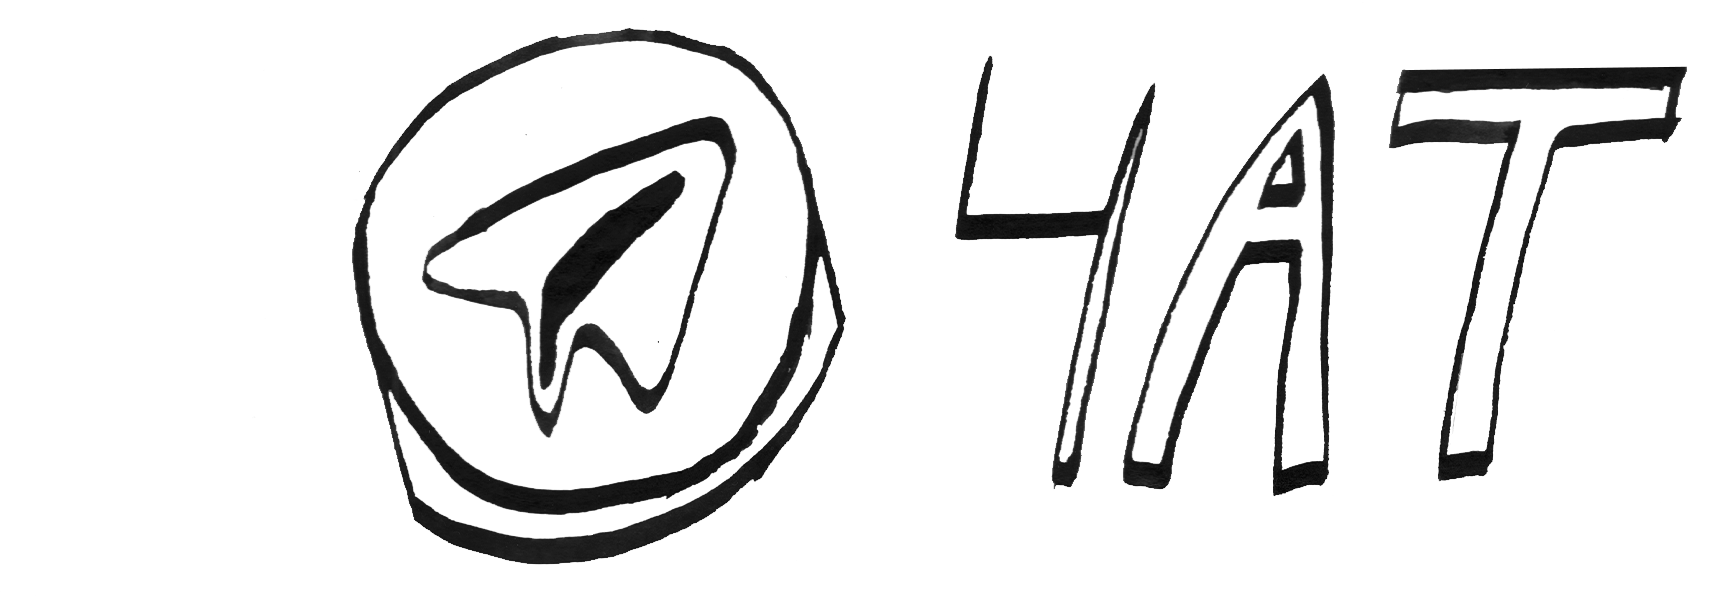 ЧАТ